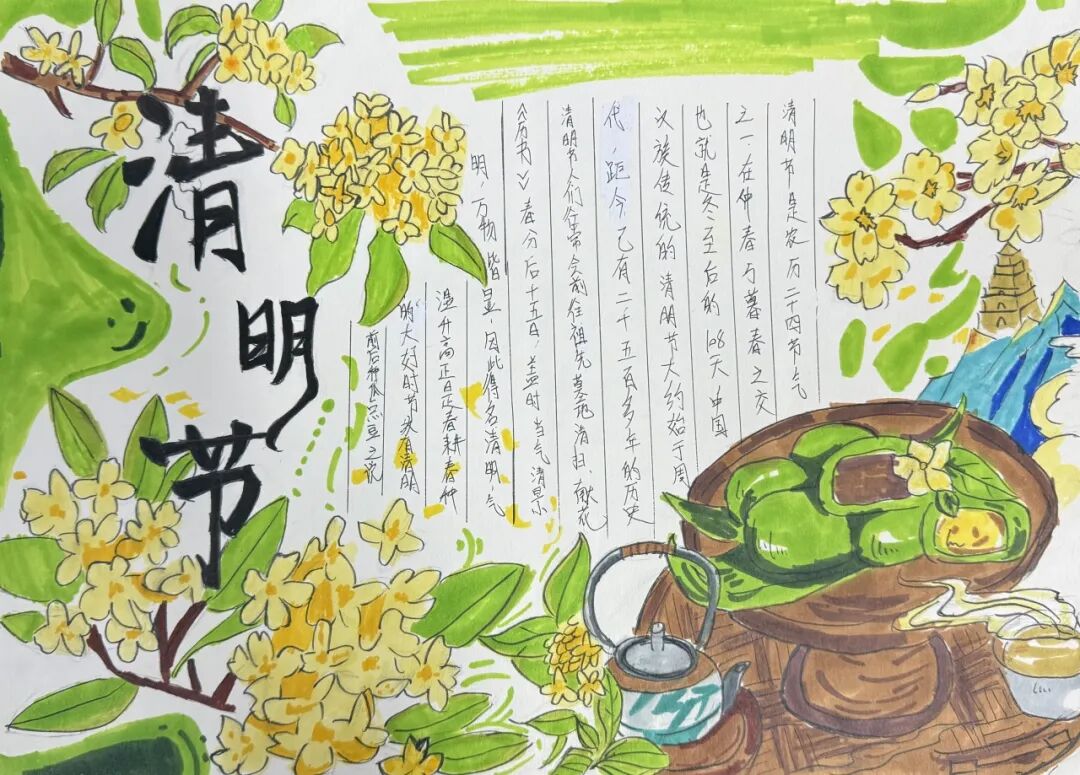 清明节
清明节是农历二十四节气
之一。在仲春与暮春之交
也就是冬至后的108天。中国
汉族传统的清明节大约始于周
代，距今已有二千五百多年的历史
清明节人们会带会前往祖先墓地清扫、献花
《历书》春分后十五日，盖时当气清景
明，万物皆显，因此得名清明。气
温升高正是春耕春种
的大好时节故有清明
前后种瓜点豆之说